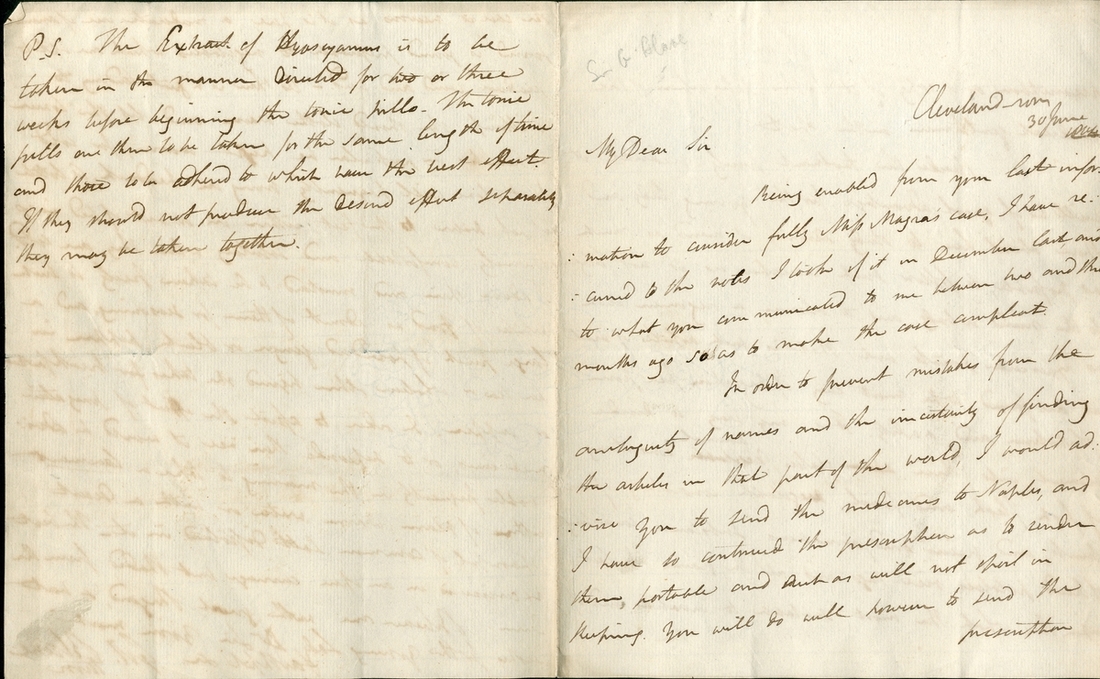 P.S. The Extract of Hyosyamus is to be
taken in the manner directed for two or three
weeks before beginning the tonic pills. The tonic
pills are then to be taken for the same length of time
and those to be adhered to which have the best effect.
If they should not produce the desired effect separately
they may be taken together.
Sir G. Blane
Cleveland-row
30 June
My Dear Sir
Being enabled from your last infor-
:mation to consider fully Miss Magra's case, I have re-
:curred to the notes I took of it in December last and
to what you communicated to me between two and three
months ago so as to make the case compleat.
In order to prevent mistakes from the
ambiguity of names and the uncertainty of finding
the articles in that part of the world, I would ad:
:vise you to send the medicines to Naples, and
I have so contrived the prescription as to render
them portable and such as will not spoil in
keeping. You will do well however to send the
prescription